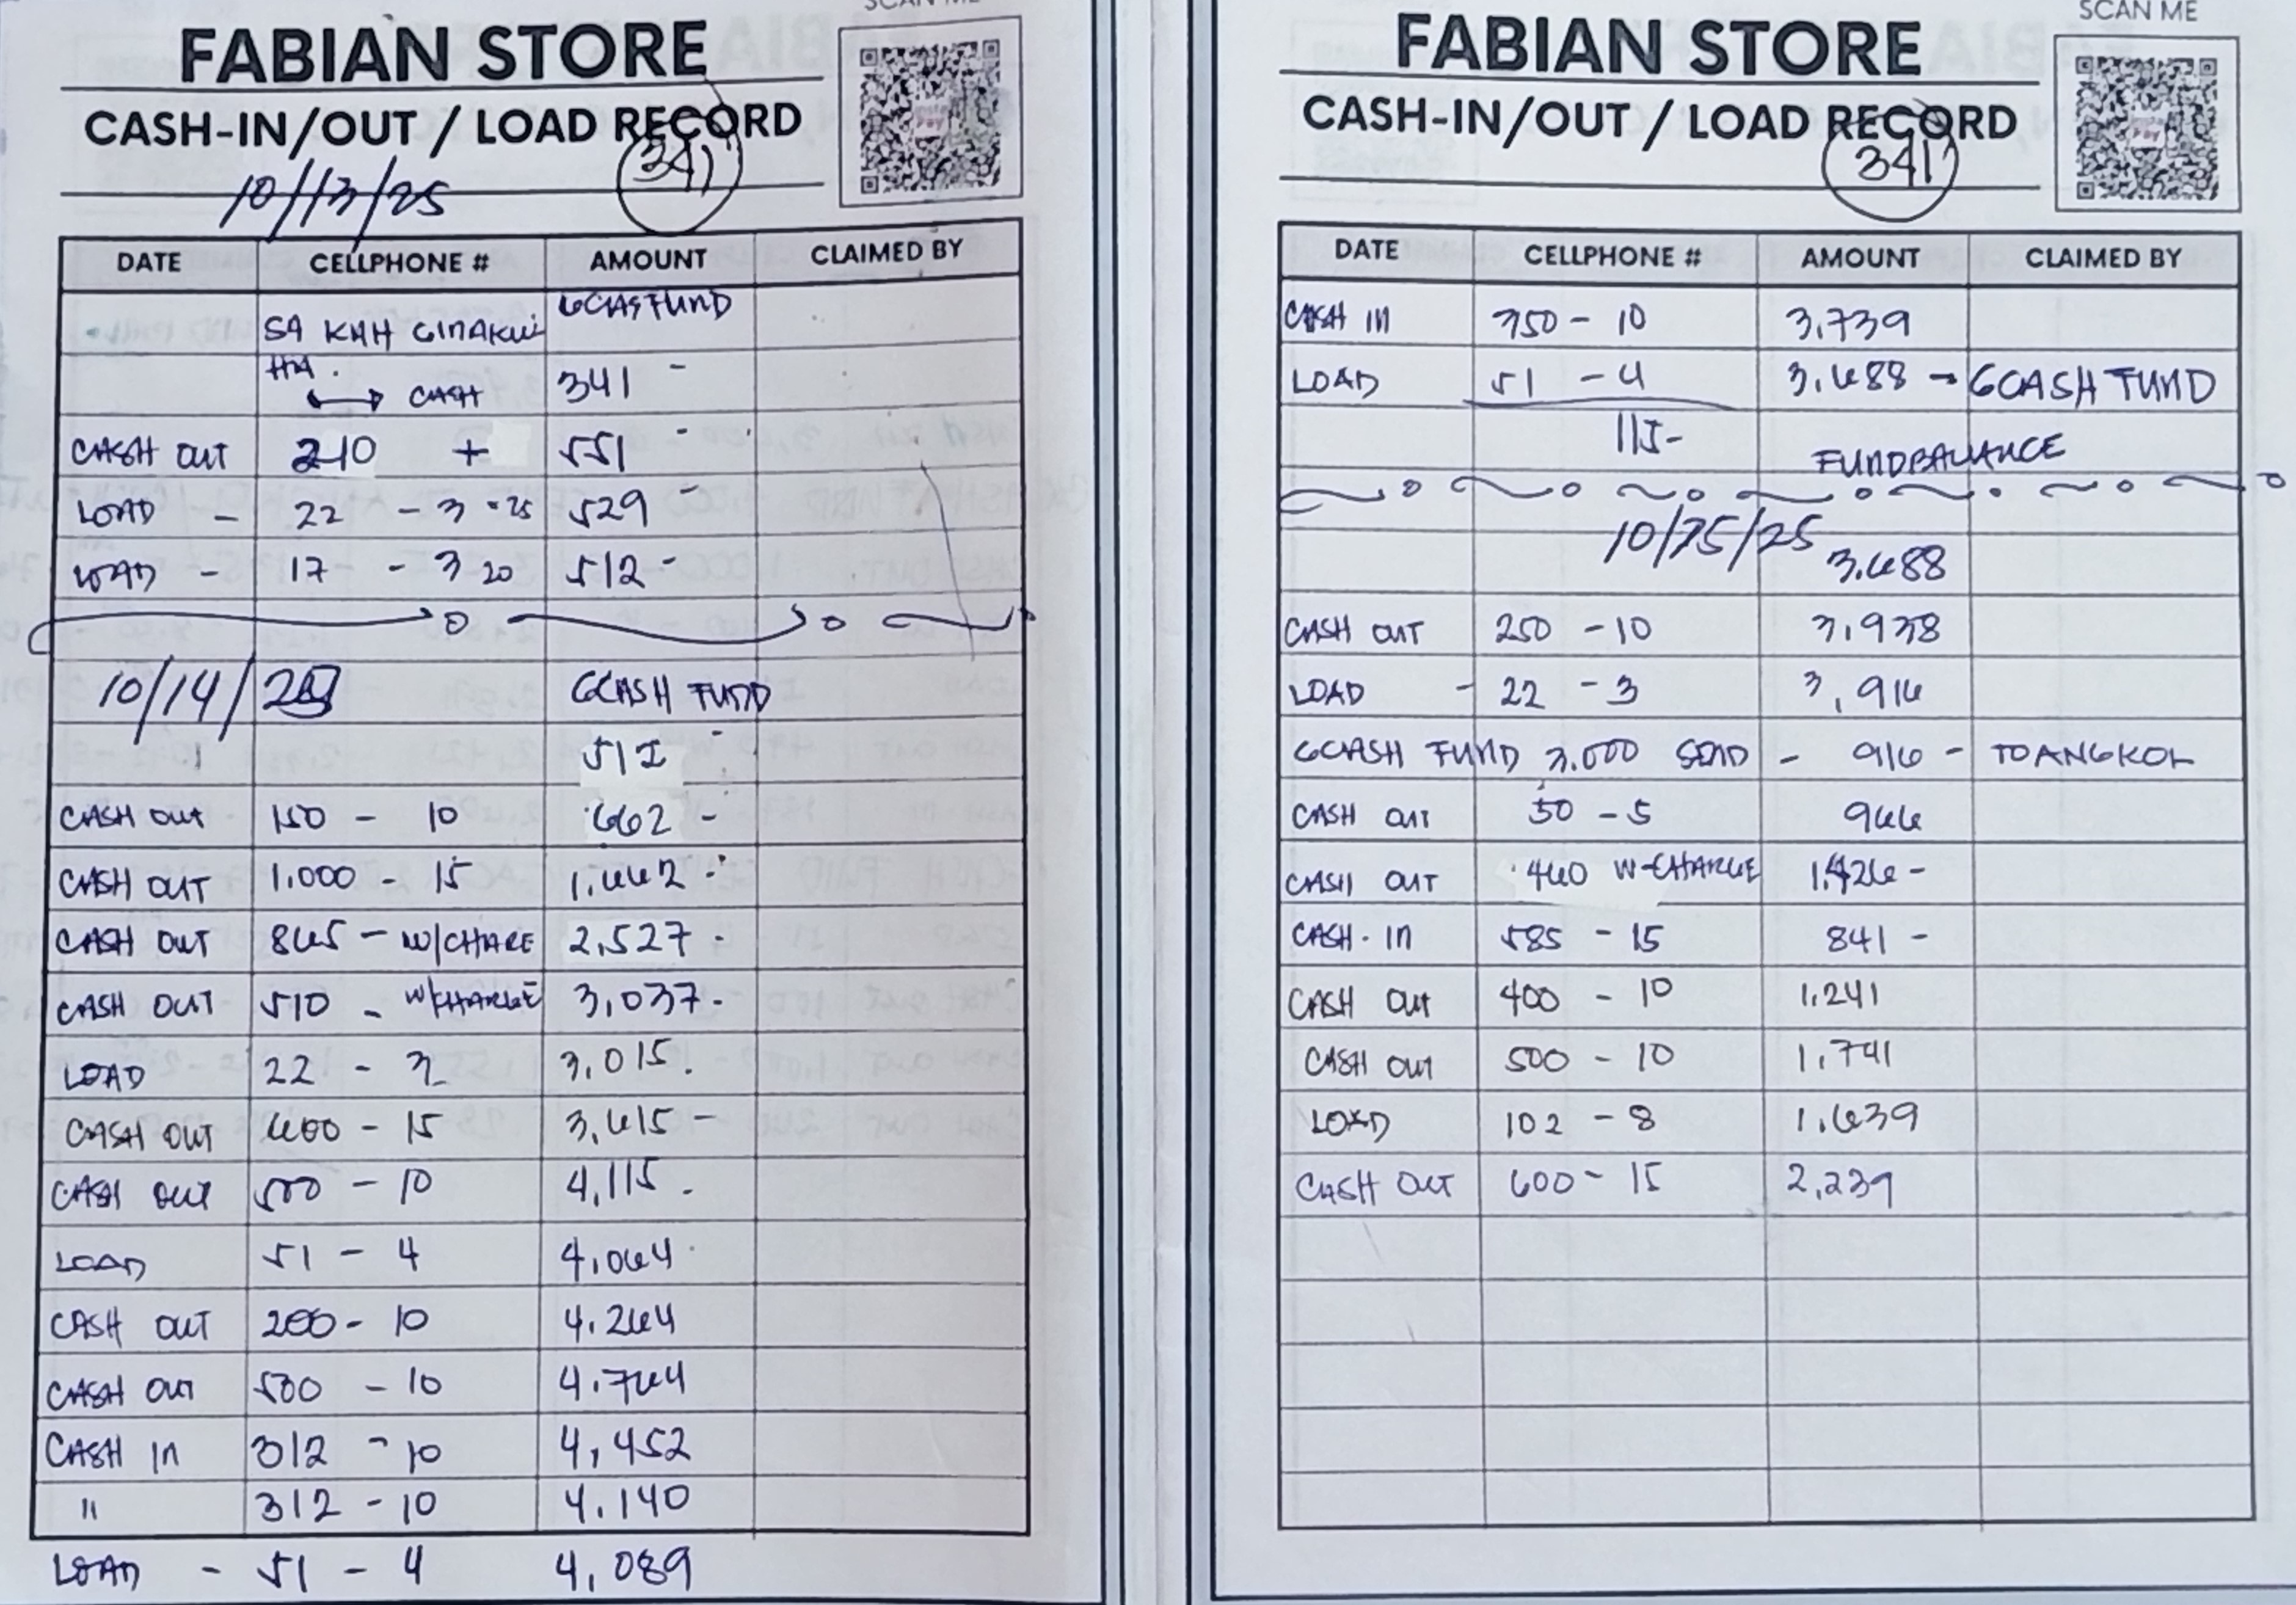 SCAN ME
FABIAN STORE
CASH-IN/OUT / LOAD RECORD
341
10/13/25
DATE CELLPHONE # AMOUNT CLAIMED BY
GCASFUND
SA KAH GINAKUI
HA.
CASH 341 -
CASH OUT 210 + 551 -
LOAD - 22 - 3 .25 529 -
LOAD - 17 - 3 20 512 -
10/14/25 GCASH FUND
512 -
CASH OUT 150 - 10 662 -
CASH OUT 1.000 - 15 1,662 -
CASH OUT 865 - W/CHARE 2,527 -
CASH OUT 510 - W/CHARGE 3,037 -
LOAD 22 - 3 3,015.
CASH OUT 600 - 15 3,615 -
CASH OUT 500 - 10 4,115 -
LOAD 51 - 4 4,064
CASH OUT 200 - 10 4.264
CASH OUT 500 - 10 4.764
CASH IN 312 - 10 4,452
" 312 - 10 4.140
LOAD - 51 - 4 4,089
SCAN ME
FABIAN STORE
CASH-IN/OUT / LOAD RECORD
341
DATE CELLPHONE # AMOUNT CLAIMED BY
CASH IN 350 - 10 3,739
LOAD 51 - 4 3.688 → GCASH FUND
115-
FUNDBALANCE
10/15/25
3.688
CASH OUT 250 - 10 3,938
LOAD - 22 - 3 3,916
GCASH FUND 3.000 SEND - 916 - TO ANGKOL
CASH OUT 50 - 5 966
CASH OUT 460 W-CHARGE 1,426 -
CASH - IN 585 - 15 841 -
CASH OUT 400 - 10 1.241
CASH OUT 500 - 10 1,741
LOAD 102 - 8 1.639
CASH OUT 600 - 15 2,239